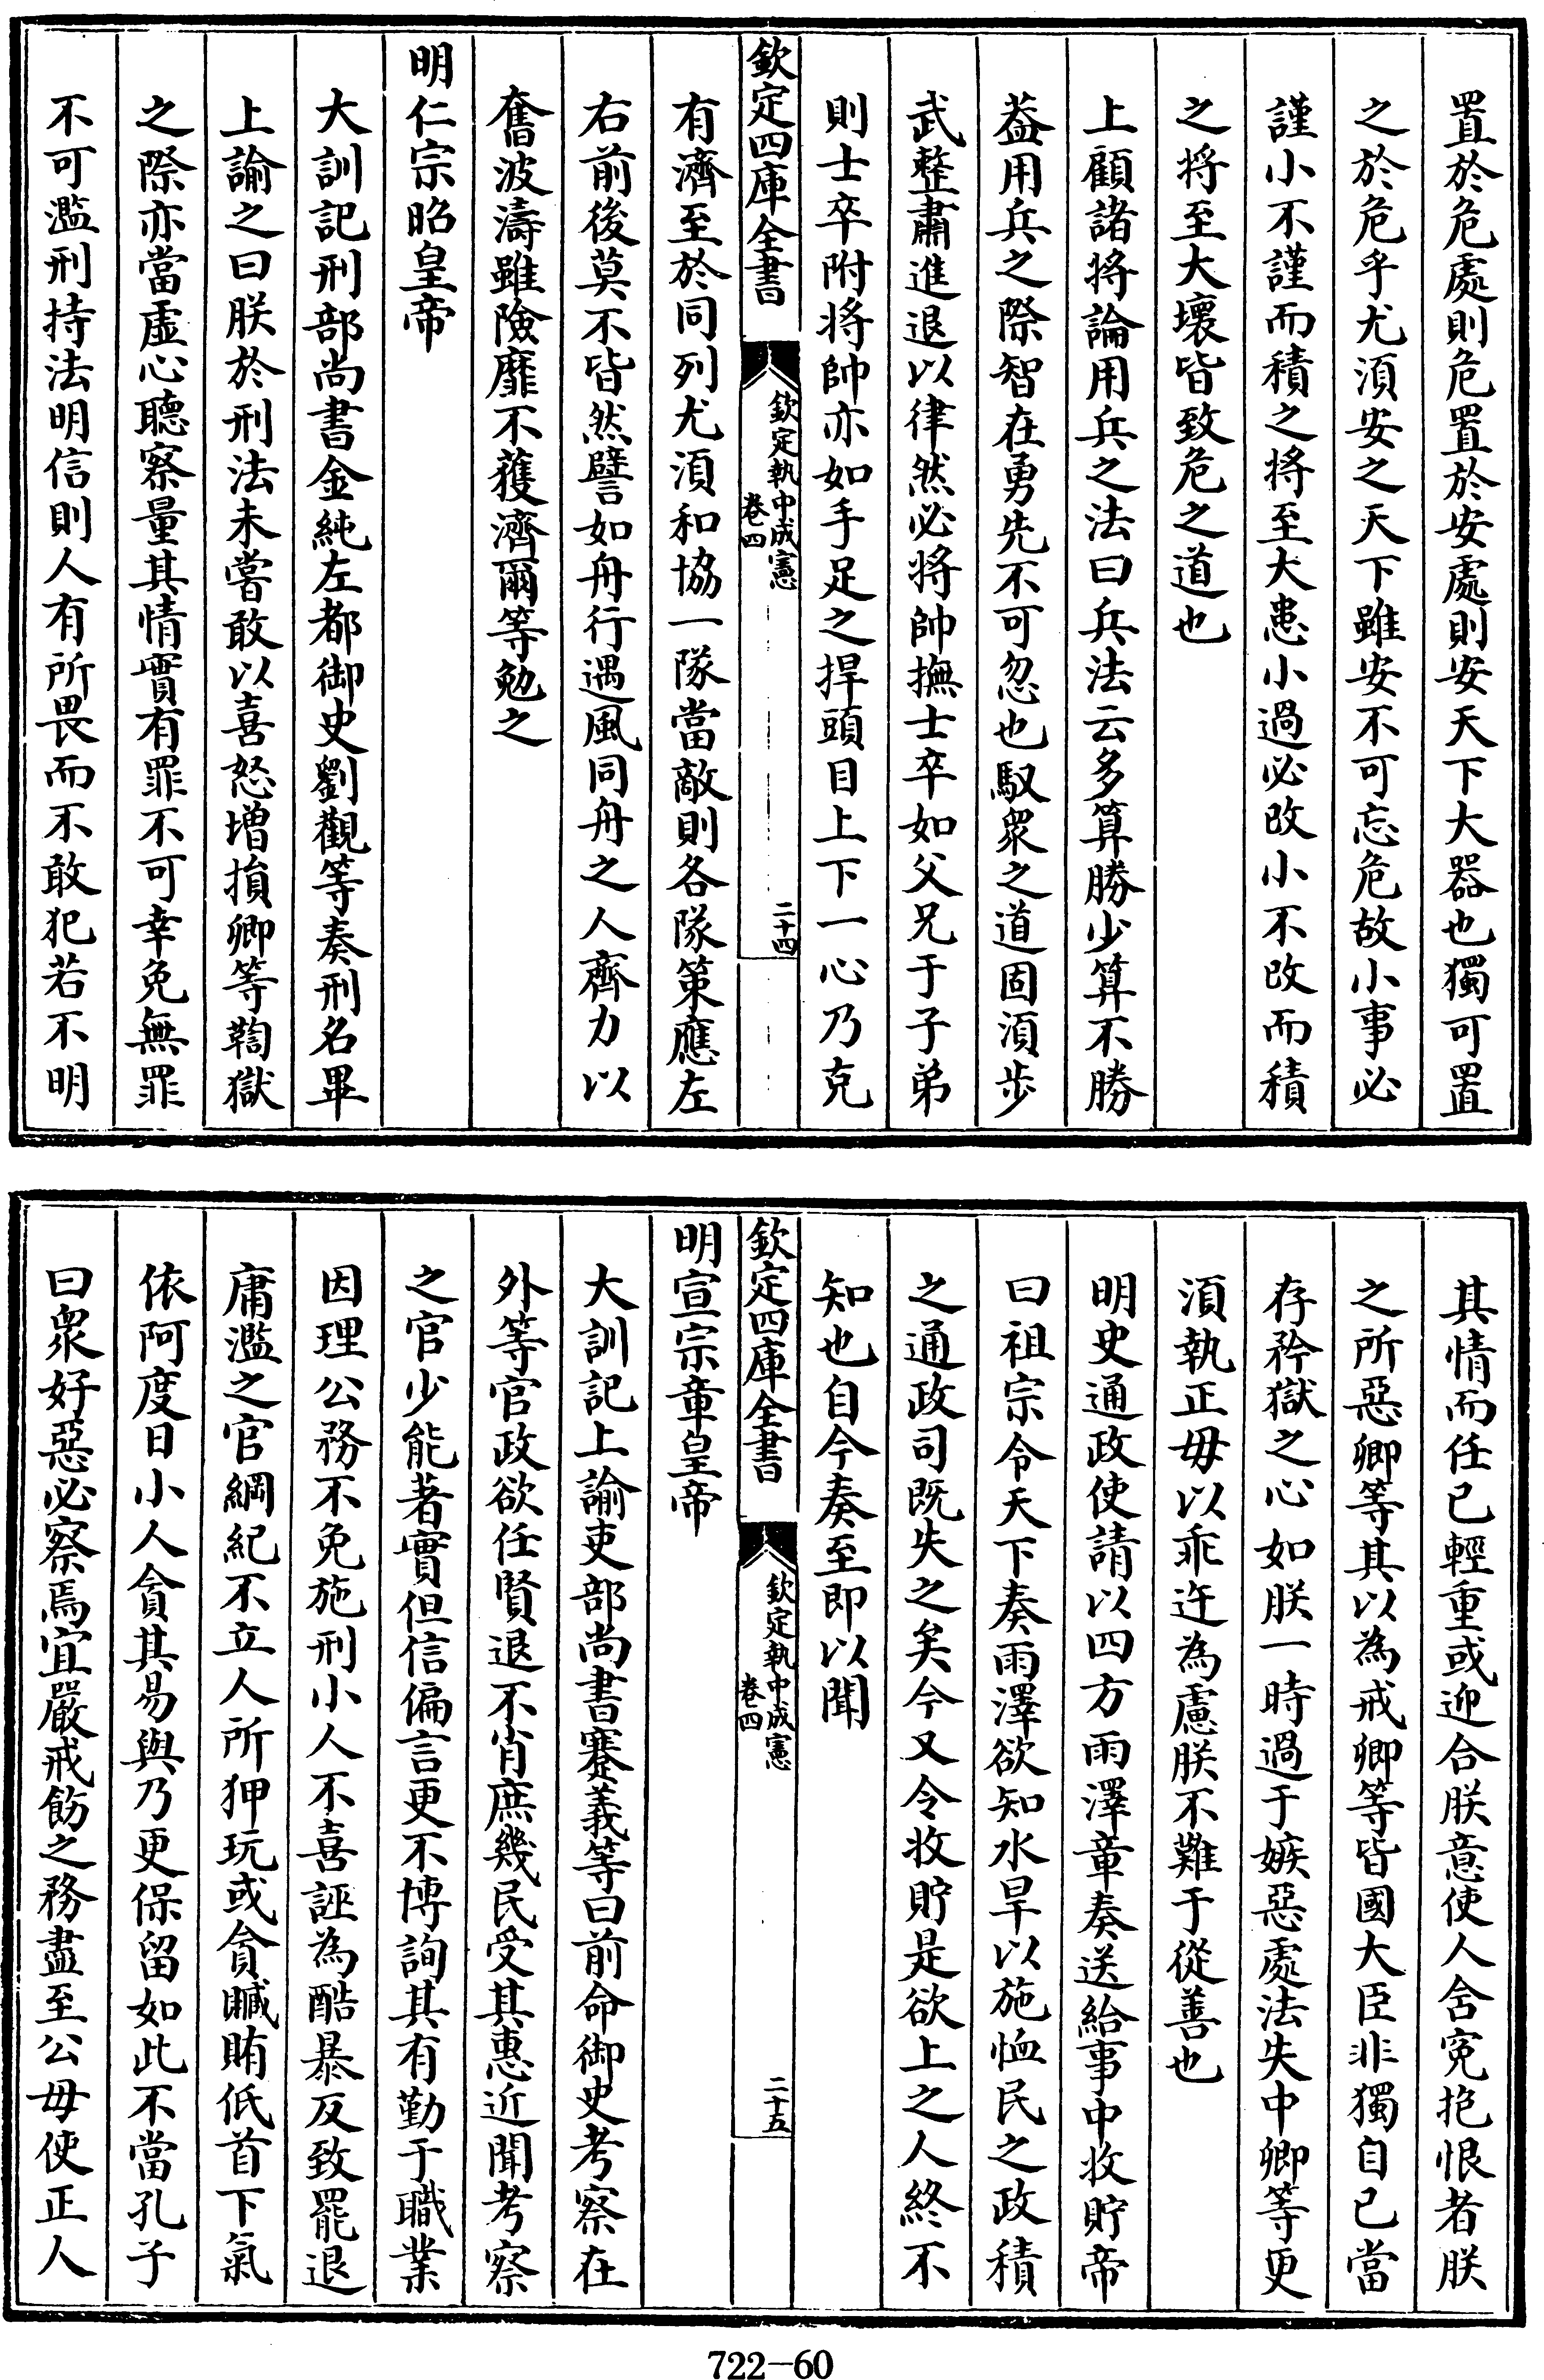 置於危處則危置於安處則安天下大器也獨可置
之於危乎尤須安之天下雖安不可忘危故小事必
謹小不謹而積之將至大患小過必改小不改而積
之將至大壞皆致危之道也
上顧諸將論用兵之法曰兵法云多算勝少算不勝
葢用兵之際智在勇先不可忽也馭衆之道固須步
武整肅進退以律然必將帥撫士卒如父兄于子弟
則士卒附將帥亦如手足之捍頭目上下一心乃克
欽定四庫全書
欽定執中成憲
卷四
二十四
有濟至於同列尤須和協一隊當敵則各隊策應左
右前後莫不皆然譬如舟行遇風同舟之人齊力以
奮波濤雖險靡不獲濟爾等勉之
明仁宗昭皇帝
大訓記刑部尚書金純左都御史劉觀等奏刑名畢
上諭之曰朕於刑法未嘗敢以喜怒增損卿等鞫獄
之際亦當虛心聽察量其情實有罪不可幸免無罪
不可濫刑持法明信則人有所畏而不敢犯若不明
其情而任已輕重或迎合朕意使人含寃抱恨者朕
之所惡卿等其以為戒卿等皆國大臣非獨自已當
存矜獄之心如朕一時過于嫉惡處法失中卿等更
須執正毋以乖迕為慮朕不難于從善也
明史通政使請以四方雨澤章奏送給事中收貯帝
曰祖宗令天下奏雨澤欲知水旱以施恤民之政積
之通政司既失之矣今又令收貯是欲上之人終不
知也自今奏至即以聞
欽定四庫全書
欽定執中成憲
卷四
二十五
明宣宗章皇帝
大訓記上諭吏部尚書蹇義等曰前命御史考察在
外等官政欲任賢退不肖庶幾民受其惠近聞考察
之官少能著實但信偏言更不博詢其有勤于職業
因理公務不免施刑小人不喜誣為酷暴反致罷退
庸濫之官綱紀不立人所狎玩或貪贓賄低首下氣
依阿度日小人貪其易與乃更保留如此不當孔子
曰衆好惡必察焉宜嚴戒飭之務盡至公毋使正人
722-60